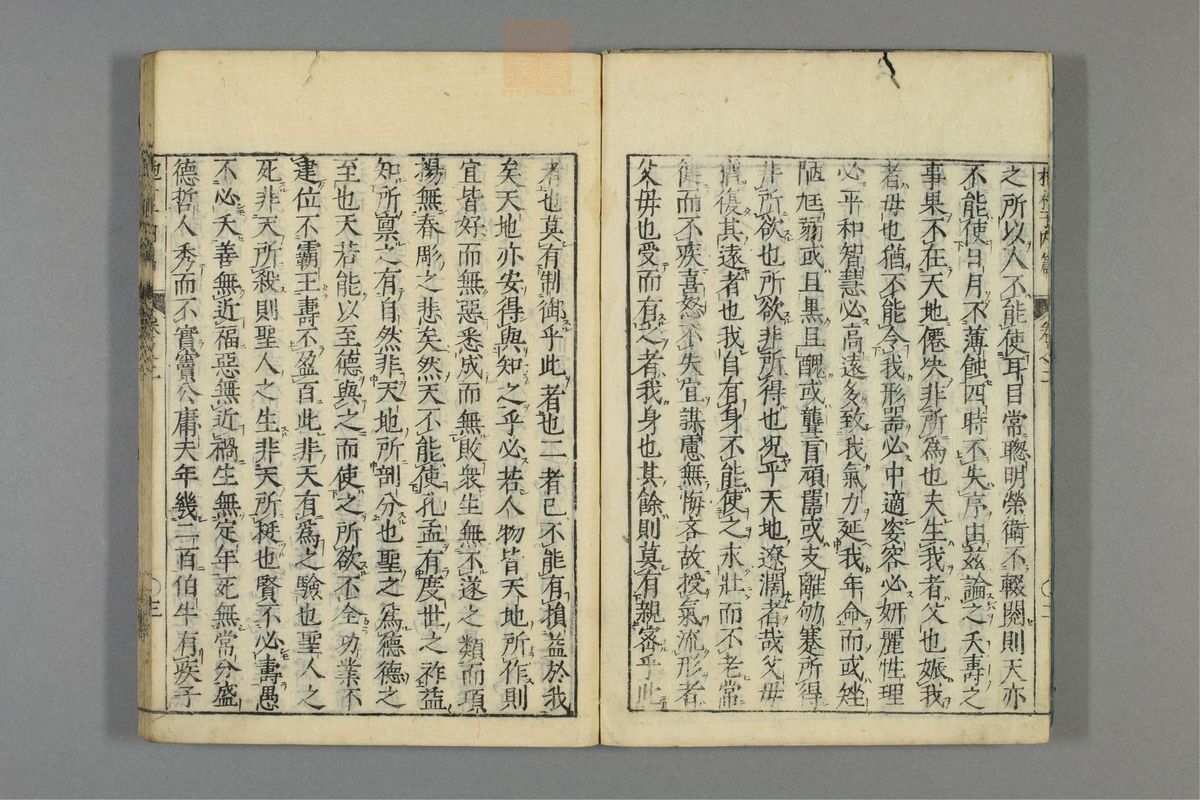 之所以人不能使耳目常聰明榮衛不輟閡則天亦
不能使日月不薄蝕四時不失序由茲論之夭壽之
事果不在天地僊與不僊決非所爲也夫生我者父也娠我
者母也猶不能令我形器必中適姿容必妍麗性理
必平和智慧必高遠多致我氣力延我年命而或矬
陋尫弱或且黒且醜或聾盲頑嚚或支離劬蹇所得
非所欲也所欲非所得也况乎天地遼濶者哉父母
猶復其遠者也我自有身不能使之永壯而不老常
健而不疾喜怒不失宜謀慮無悔吝故授氣流形者
父母也受而有之者我身也其餘則莫有親密乎此
者也莫有制御乎此者也二者已不能有損益於我
矣天地亦安得與知之乎必若人物皆天地所作則
宜皆好而無惡悉成而無敗衆生無不遂之類而項
揚無春彫之悲矣然天不能使孔孟有度世之祚益
知所禀之有自然非天地所剖分也聖之爲德德之
至也天若能以至德與之而使之所欲不全功業不
建位不霸王壽不盈百此非天有爲之驗也聖人之
死非天所殺則聖人之生非天所挺也賢不必壽愚
不必夭善無近福惡無近禍生無定年死無常分盛
德哲人秀而不實竇公庸夫年幾二百伯牛有疾子